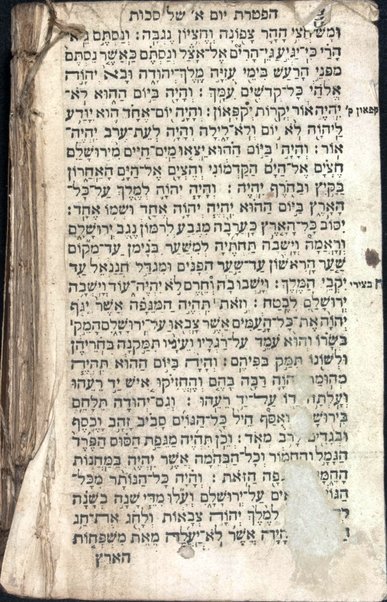 הפטרת יום א׳ של סכות
ומש חצי ההר צפונה וחציו נגבה: ונסתם גיא
הרי כי־יגיע גי־הרים אל־אצל ונסתם כאשר נסתם
מפני הרעש בימי עזיה מלך־יהודה ובא יהוה
אלהי כל־קדשים עמך: והיה ביום ההוא לא־
יהיה אור יקרות יקפאון: והיה יום־אחד הוא יודע
ליהוה לא יום ולא־לילה והיה לעת־ערב יהיה־
אור: והיה ביום ההוא יצאו מים־חיים מירושלם
חצים אל־הים הקדמוני וחצים אל־הים האחרון
בקיץ ובחרף יהיה: והיה יהוה למלך על־כל־
הארץ ביום ההוא יהיה יהוה אחד ושמו אחד:
יסוב כל־הארץ כערבה מגבע לרמון נגב ירושלם
וראמה וישבה תחתיה למשער בנימן עד־מקום
שער הראשון עד־שער הפנים ומגדל חננאל עד
יקבי המלך: וישבו בה וחרם לא יהיה־עוד וישבה
ירושלם לבטח: וזאת תהיה המגפה אשר יגף
יהוה את־כל־העמים אשר צבאו על־ירושלם המק
בשרו והוא עמד על־רגליו ועיניו תמקנה בחריהן
ולשונו תמק בפיהם: והיה ביום ההוא תהיה
מהומת יהוה רבה בהם והחזיקו איש יד רעהו
ועלתה ידו על־יד רעהו: וגם־יהודה תלחם
בירוש ואסף חיל כל־הגוים סביב זהב וכסף
ובגדים לרב מאד: וכן תהיה מגפת הסוס הפרד
הגמל והחמור וכל־הבהמה אשר יהיה במחנות
ההמ פה הזאת: והיה כל־הנותר מכל־
הגוי אים על־ירושלם ועלו מדי שנה בשנה
למלך יהוה צבאות ולחג את־חג
והיה אשר לא־יעלה מאת משפחות
הארץ